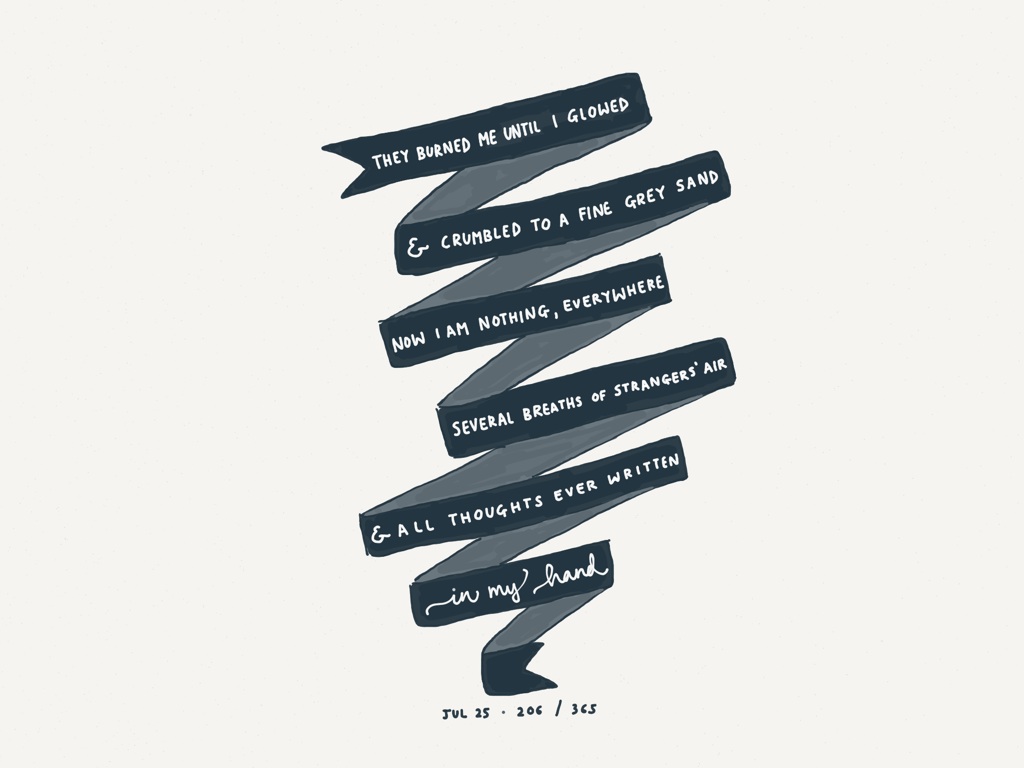 THEY BURNED ME UNTIL I GLOWED
& CRUMBLED TO A FINE GREY SAND
NOW I AM NOTHING, EVERYWHERE
SEVERAL BREATHS OF STRANGERS' AIR
& ALL THOUGHTS EVER WRITTEN
in my hand
JUL 25 · 206 / 365